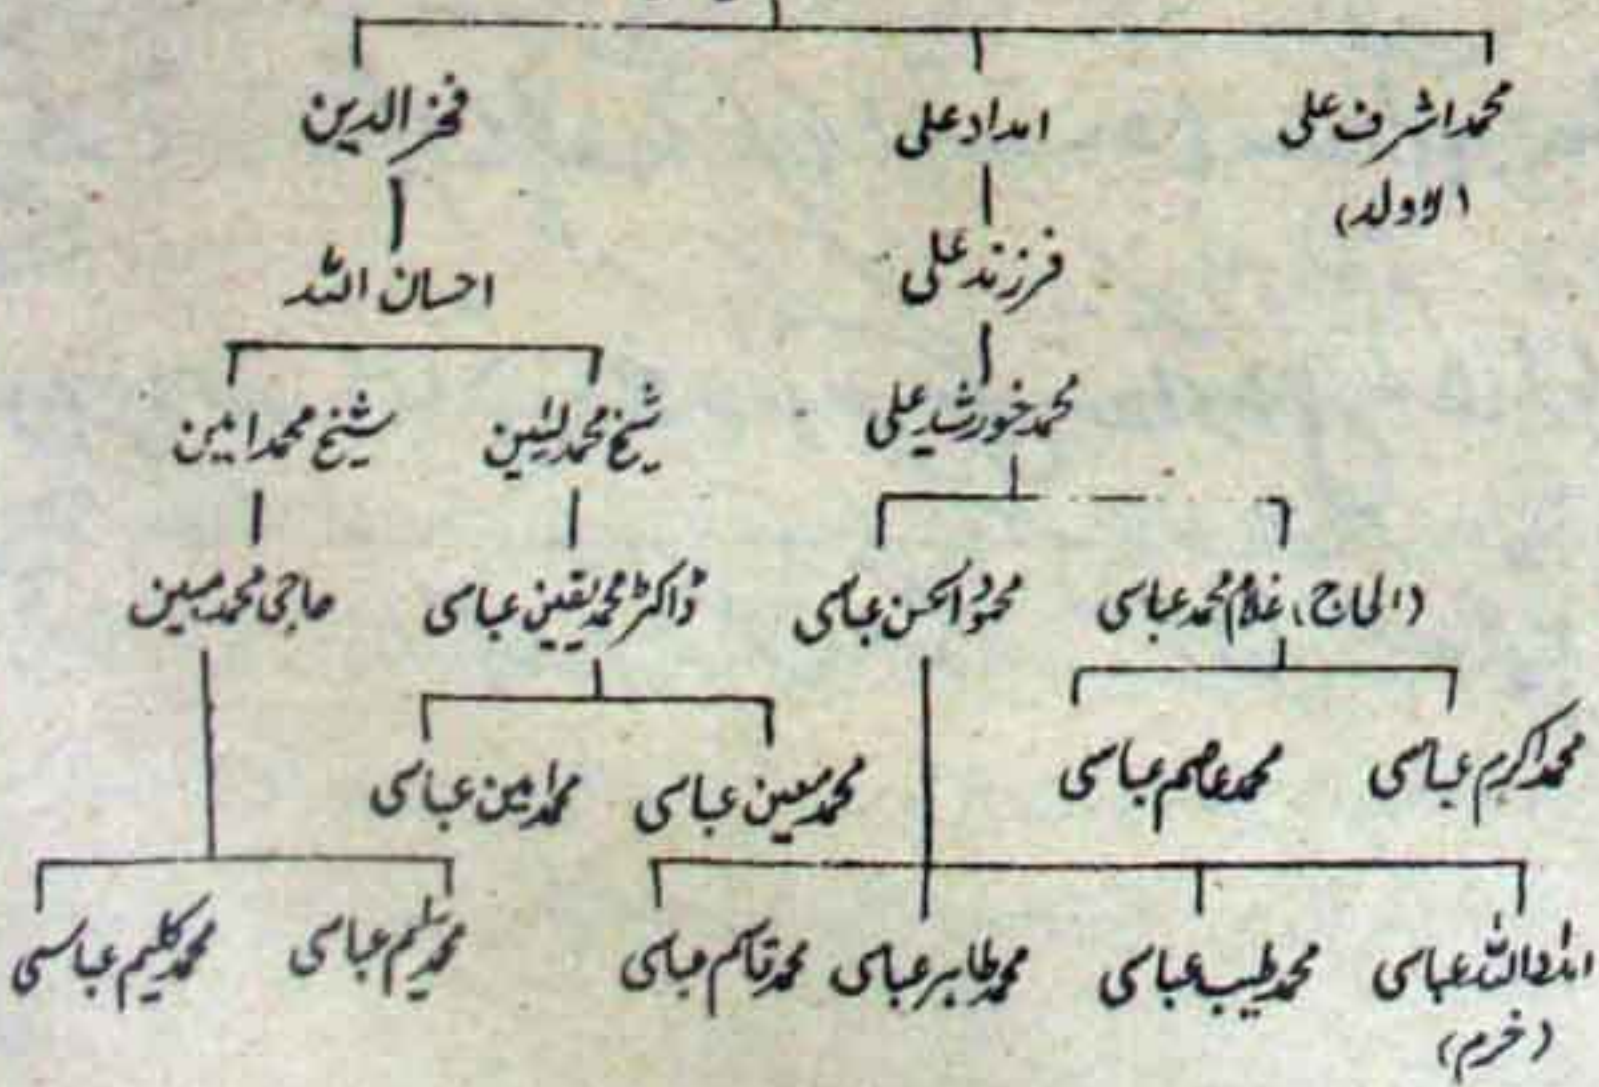 محمد اشرف علی امداد علی فخر الدین
(لاولد)
فرزند علی احسان اللہ
محمد خورشید علی شیخ محمد یٰسین شیخ محمد امین
(الحاج) غلام محمد عباسی محمود الحسن عباسی ڈاکٹر محمد یقین عباسی حاجی محمد مبین
محمد اکرم عباسی محمد عاصم عباسی محمد معین عباسی محمد امین عباسی
اللہ عباسی محمد طیب عباسی محمد طاہر عباسی محمد قاسم عباسی محمد سلیم عباسی محمد کلیم عباسی
(خرم)